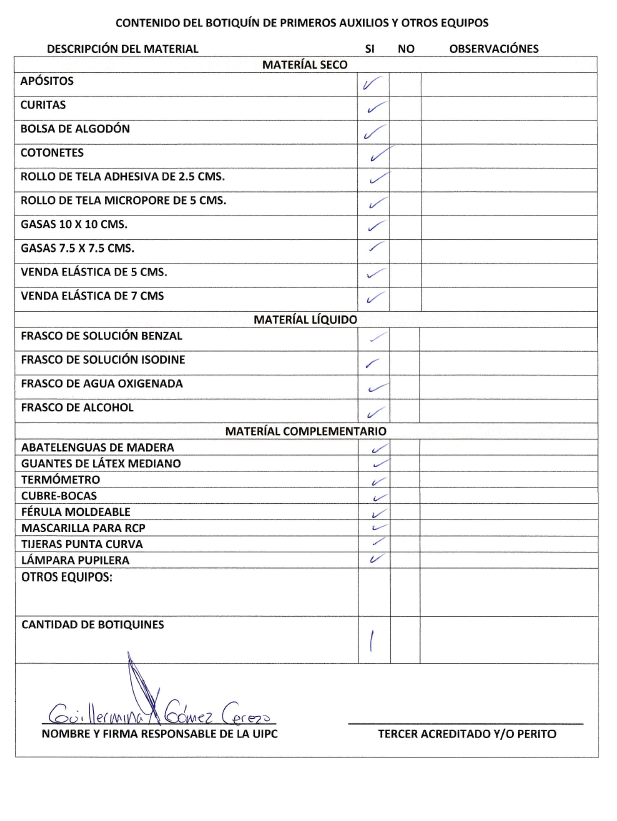 CONTENIDO DEL BOTIQUÍN DE PRIMEROS AUXILIOS Y OTROS EQUIPOS
DESCRIPCIÓN DEL MATERIAL SI NO OBSERVACIÓNES
MATERÍAL SECO
APÓSITOS ✓
CURITAS ✓
BOLSA DE ALGODÓN ✓
COTONETES ✓
ROLLO DE TELA ADHESIVA DE 2.5 CMS. ✓
ROLLO DE TELA MICROPORE DE 5 CMS. ✓
GASAS 10 X 10 CMS. ✓
GASAS 7.5 X 7.5 CMS. ✓
VENDA ELÁSTICA DE 5 CMS. ✓
VENDA ELÁSTICA DE 7 CMS ✓
MATERÍAL LÍQUIDO
FRASCO DE SOLUCIÓN BENZAL ✓
FRASCO DE SOLUCIÓN ISODINE ✓
FRASCO DE AGUA OXIGENADA ✓
FRASCO DE ALCOHOL ✓
MATERÍAL COMPLEMENTARIO
ABATELENGUAS DE MADERA ✓
GUANTES DE LÁTEX MEDIANO ✓
TERMÓMETRO ✓
CUBRE-BOCAS ✓
FÉRULA MOLDEABLE ✓
MASCARILLA PARA RCP ✓
TIJERAS PUNTA CURVA ✓
LÁMPARA PUPILERA ✓
OTROS EQUIPOS:
CANTIDAD DE BOTIQUINES 1
Guillermina Gómez Cerezo
NOMBRE Y FIRMA RESPONSABLE DE LA UIPC TERCER ACREDITADO Y/O PERITO